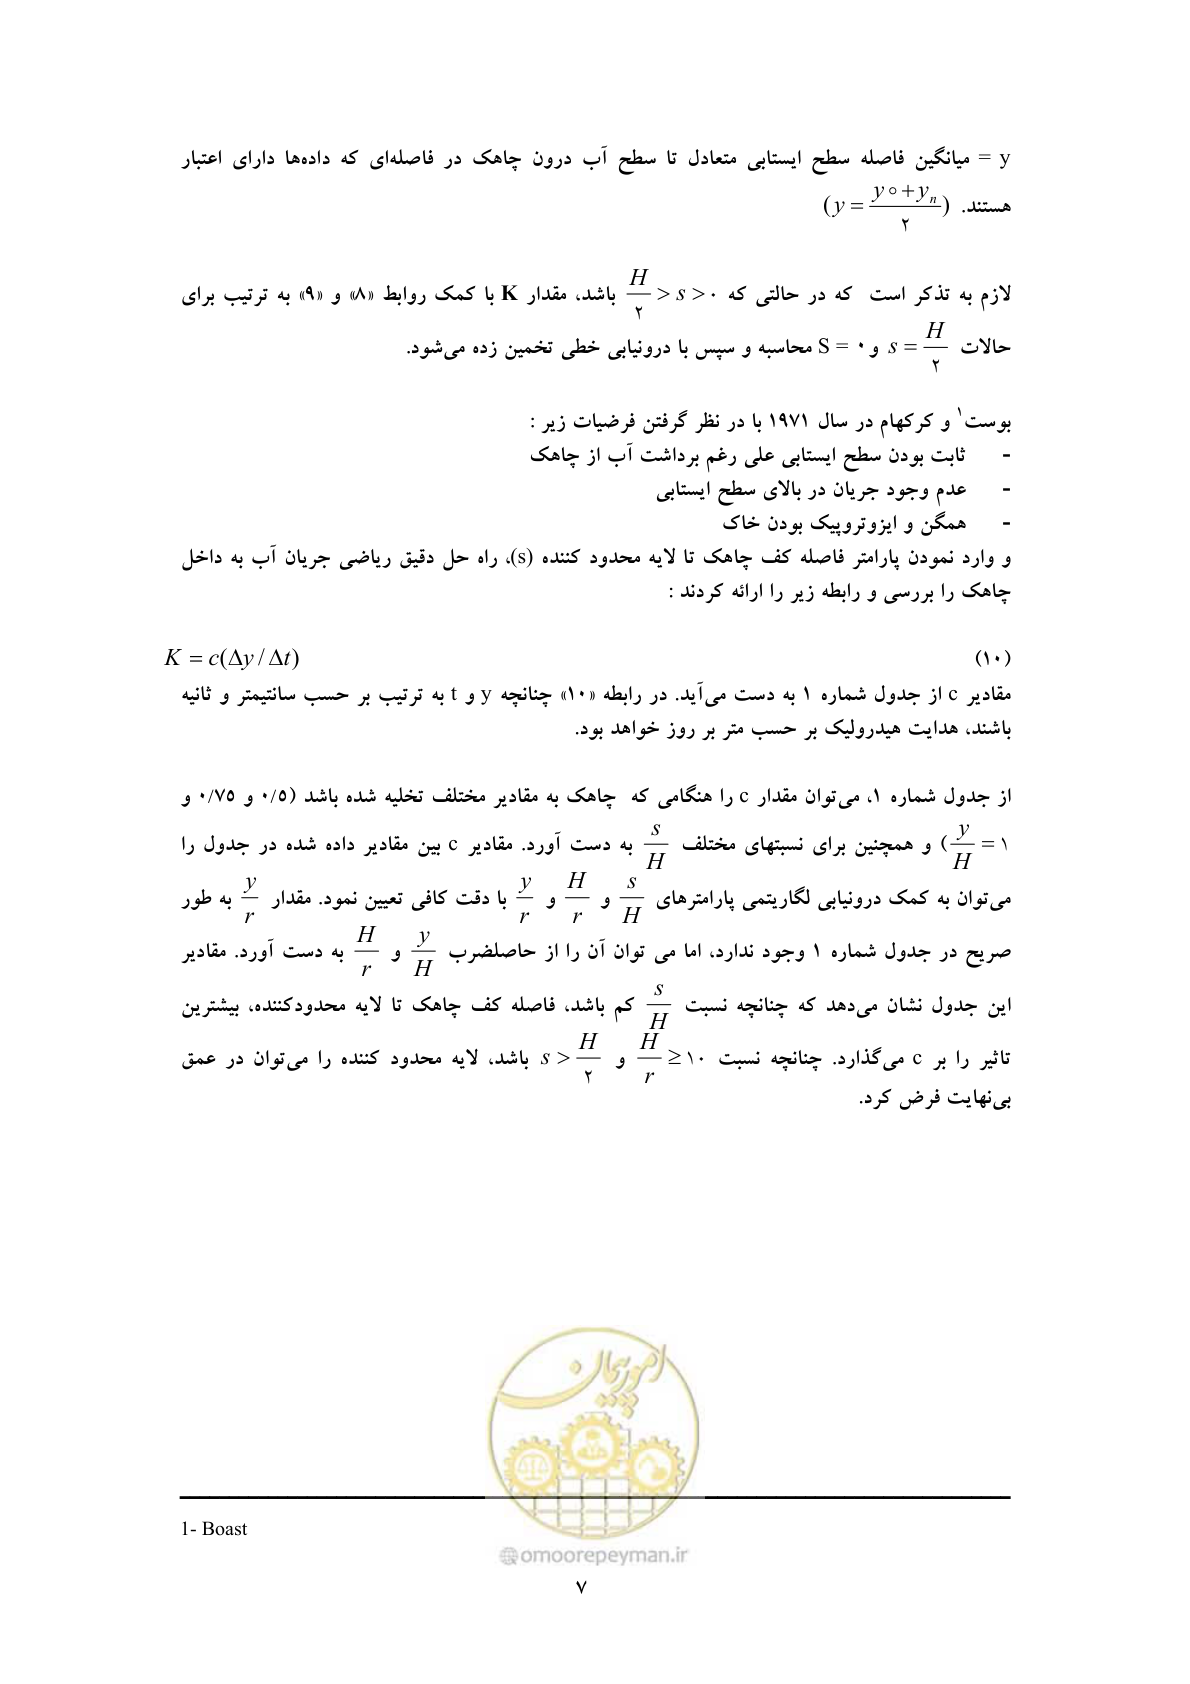 y = میانگین فاصله سطح ایستابی متعادل تا سطح آب درون چاهک در فاصله‌ای که داده‌ها دارای اعتبار
هستند. (y = (y∘ + yₙ)/۲)
لازم به تذکر است که در حالتی که H/۲ > s > ۰ باشد، مقدار K با کمک روابط «۸» و «۹» به ترتیب برای
حالات s = H/۲ و S = ۰ محاسبه و سپس با درونیابی خطی تخمین زده می‌شود.
بوست۱ و کرکهام در سال ۱۹۷۱ با در نظر گرفتن فرضیات زیر :
- ثابت بودن سطح ایستابی علی رغم برداشت آب از چاهک
- عدم وجود جریان در بالای سطح ایستابی
- همگن و ایزوتروپیک بودن خاک
و وارد نمودن پارامتر فاصله کف چاهک تا لایه محدود کننده (s)، راه حل دقیق ریاضی جریان آب به داخل
چاهک را بررسی و رابطه زیر را ارائه کردند :
(۱۰) K = c(Δy / Δt)
مقادیر c از جدول شماره ۱ به دست می‌آید. در رابطه «۱۰» چنانچه y و t به ترتیب بر حسب سانتیمتر و ثانیه
باشند، هدایت هیدرولیک بر حسب متر بر روز خواهد بود.
از جدول شماره ۱، می‌توان مقدار c را هنگامی که چاهک به مقادیر مختلف تخلیه شده باشد (۰/۵ و ۰/۷۵ و
y/H = ۱) و همچنین برای نسبتهای مختلف s/H به دست آورد. مقادیر c بین مقادیر داده شده در جدول را
می‌توان به کمک درونیابی لگاریتمی پارامترهای s/H و H/r و y/r با دقت کافی تعیین نمود. مقدار y/r به طور
صریح در جدول شماره ۱ وجود ندارد، اما می توان آن را از حاصلضرب y/H و H/r به دست آورد. مقادیر
این جدول نشان می‌دهد که چنانچه نسبت s/H کم باشد، فاصله کف چاهک تا لایه محدودکننده، بیشترین
تاثیر را بر c می‌گذارد. چنانچه نسبت H/r ≥ ۱۰ و s > H/۲ باشد، لایه محدود کننده را می‌توان در عمق
بی‌نهایت فرض کرد.
امور پیمان
1- Boast
@omoorepeyman.ir
۷